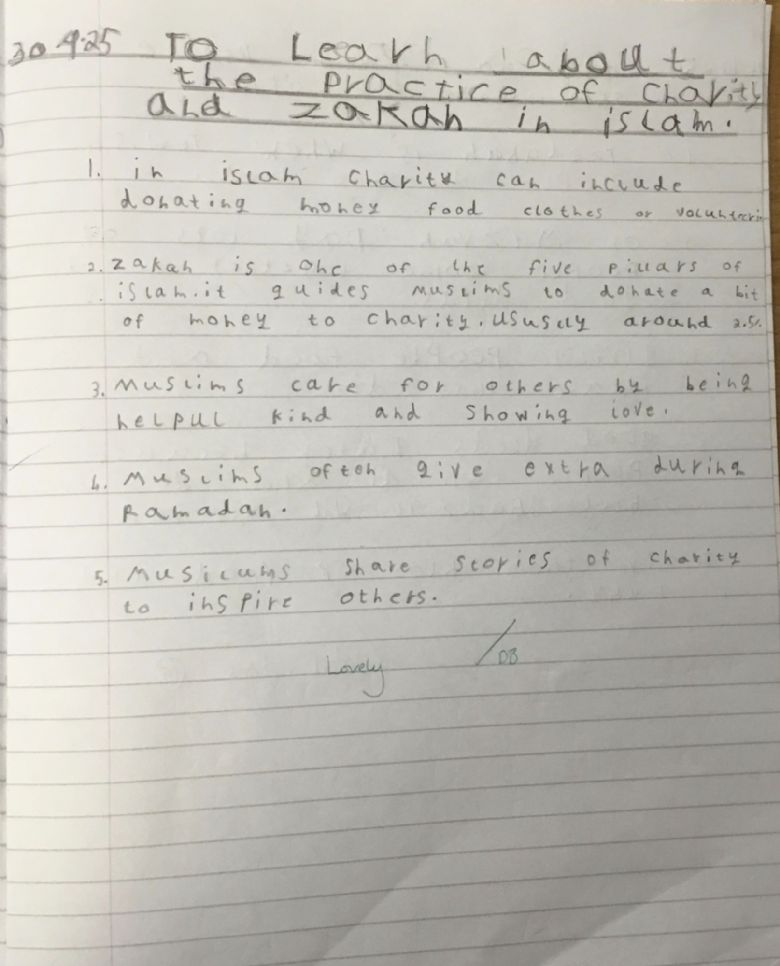 30.4.25 TO Learn about
the practice of charity
and zakah in islam.
1. in islam charity can include
donating money food clothes or volunteerin
2. zakah is one of the five pillars of
islam.it guides muslims to donate a bit
of money to charity. Ususlly around 2.5%.
3. muslims care for others by being
helpul kind and showing love.
4. Muslims often give extra during
Ramadan.
5. Muslcums share stories of charity
to inspire others.
Lovely /DB